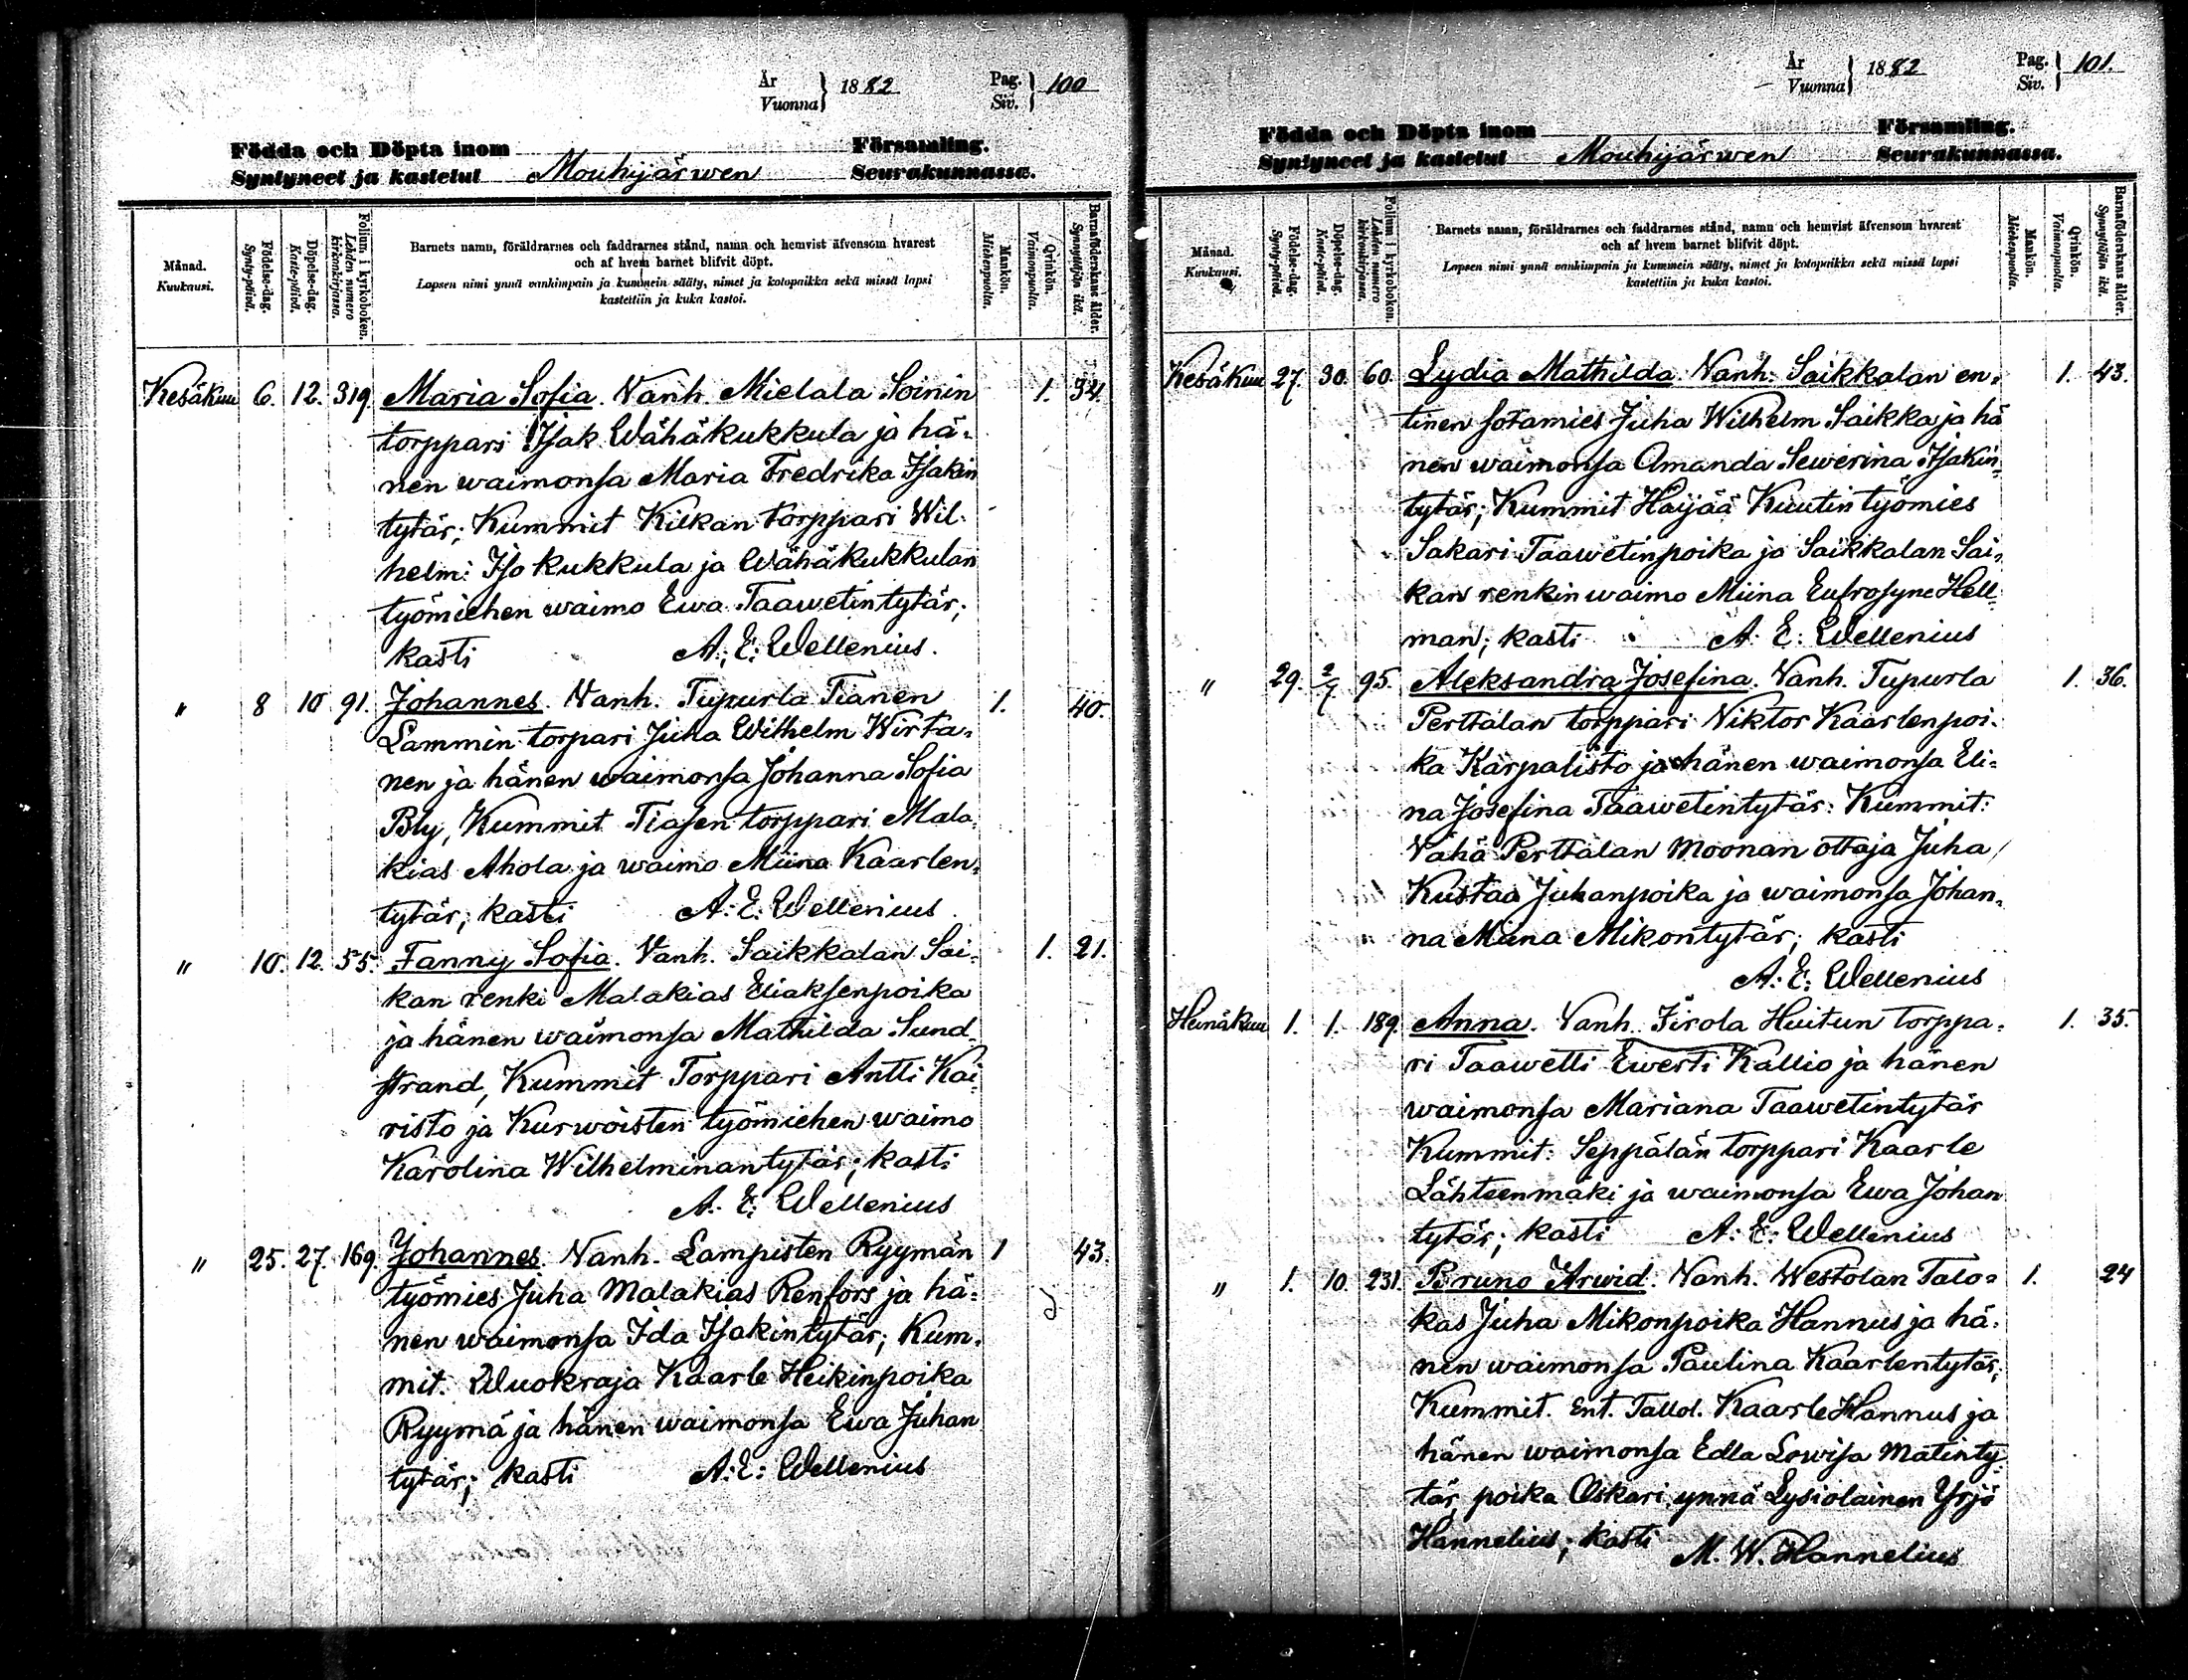 År
Vuonna } 1882
Pag.
Siv. } 100
Födda och Döpta inom Församling.
Syntyneet ja kastetut Mouhijärwen Seurakunnassa.
Månad.
Kuukausi.
Födelse-dag.
Synty-päivä.
Döpelse-dag.
Kaste-päivä.
Folium i kyrkoboken.
Lehden numero kirkonkirjassa.
Barnets namn, föräldrarnes och faddrarnes stånd, namn och hemvist äfvensom hvarest
och af hvem barnet blifvit döpt.
Lapsen nimi ynnä vanhimpain ja kummein sääty, nimet ja kotopaikka sekä missä lapsi
kastettiin ja kuka kastoi.
Mankön.
Miehenpuolta.
Qvinkön.
Vaimonpuolta.
Barnaföderskans ålder.
Synnyttäjän ikä.
Kesäkuu 6. 12. 319. Maria Sofia. Vanh. Mielala Soinin 1. 34.
torppari Isak Wähäkukkula ja hä-
nen waimonsa Maria Fredrika Isakin
tytär; Kummit Kilkan torppari Wil-
helmi Iso kukkula ja Wähäkukkulan
työmiehen waimo Ewa Taawetintytär;
kasti A. E. Wellenius.
" 8 10 91. Johannes. Vanh. Tupurla Tianen 1. 40.
Lammin torpari Juha Wilhelm Wirta-
nen ja hänen waimonsa Johanna Sofia
Bly, Kummit Tiasen torppari Mala-
kias Ahola ja waimo Miina Kaarlen-
tytär; kasti A. E. Wellenius.
" 10. 12. 55. Fanny Sofia. Vanh. Saikkalan Sai- 1. 21.
kan renki Malakias Eliaksenpoika
ja hänen waimonsa Mathilda Sund-
strand, Kummit Torppari Antti Kai-
risto ja Kurwoisten työmiehen waimo
Karolina Wilhelminantytär; kasti
A. E. Wellenius
" 25. 27. 169. Johannes. Vanh. Lampisten Ryymän 1 43.
työmies Juha Malakias Renfors ja hä-
nen waimonsa Ida Isakintytär; Kum-
mit. Wuokraja Kaarle Heikinpoika
Ryymä ja hänen waimonsa Ewa Juhan
tytär; kasti A. E. Wellenius
År
Vuonna } 1882
Pag.
Siv. } 101.
Födda och Döpta inom Församling.
Syntyneet ja kastetut Mouhijärwen Seurakunnassa.
Månad.
Kuukausi.
Födelse-dag.
Synty-päivä.
Döpelse-dag.
Kaste-päivä.
Folium i kyrkoboken.
Lehden numero kirkonkirjassa.
Barnets namn, föräldrarnes och faddrarnes stånd, namn och hemvist äfvensom hvarest
och af hvem barnet blifvit döpt.
Lapsen nimi ynnä vanhimpain ja kummein sääty, nimet ja kotopaikka sekä missä lapsi
kastettiin ja kuka kastoi.
Mankön.
Miehenpuolta.
Qvinkön.
Vaimonpuolta.
Barnaföderskans ålder.
Synnyttäjän ikä.
Kesäkuu 27. 30. 60. Lydia Mathilda. Vanh. Saikkalan en- 1. 43.
tinen sotamies Juha Wilhelm Saikka ja hä
nen waimonsa Amanda Sewerina Isakin-
tytär; Kummit Häijää Kuutin työmies
Sakari Taawetinpoika ja Saikkalan Sai-
kan renkin waimo Miina Eufrosyne Hell-
man; kasti A. E. Wellenius
" 29. 2/7 95. Aleksandra Josefina. Vanh. Tupurla 1. 36.
Perttälan torppari Viktor Kaarlenpoi-
ka Karpalisto ja hänen waimonsa Eli-
na Josefina Taawetintytär: Kummit:
Vähä Perttälan moonan ottaja Juha
Kustaa Juhanpoika ja waimonsa Johan-
na Miina Mikontytär; kasti
A. E. Wellenius
Heinäkuu 1. 1. 189. Anna. Vanh. Jirola Huitun torppa- 1. 35.
ri Taawetti Ewerti Kallio ja hänen
waimonsa Mariana Taawetintytär
Kummit: Seppälän torppari Kaarle
Lähteenmäki ja waimonsa Ewa Johan
tytär; kasti A. E. Wellenius
" 1. 10. 231. Bruno Arwid. Vanh. Westolan Talo- 1. 24
kas Juha Mikonpoika Hannus ja hä-
nen waimonsa Paulina Kaarlentytär;
Kummit. Ent. Tallol. Kaarle Hannus ja
hänen waimonsa Edla Lowisa Matinty-
tär, poika Oskari ynnä Lysiolainen Yrjö
Hannelius; kasti M. W. Hannelius